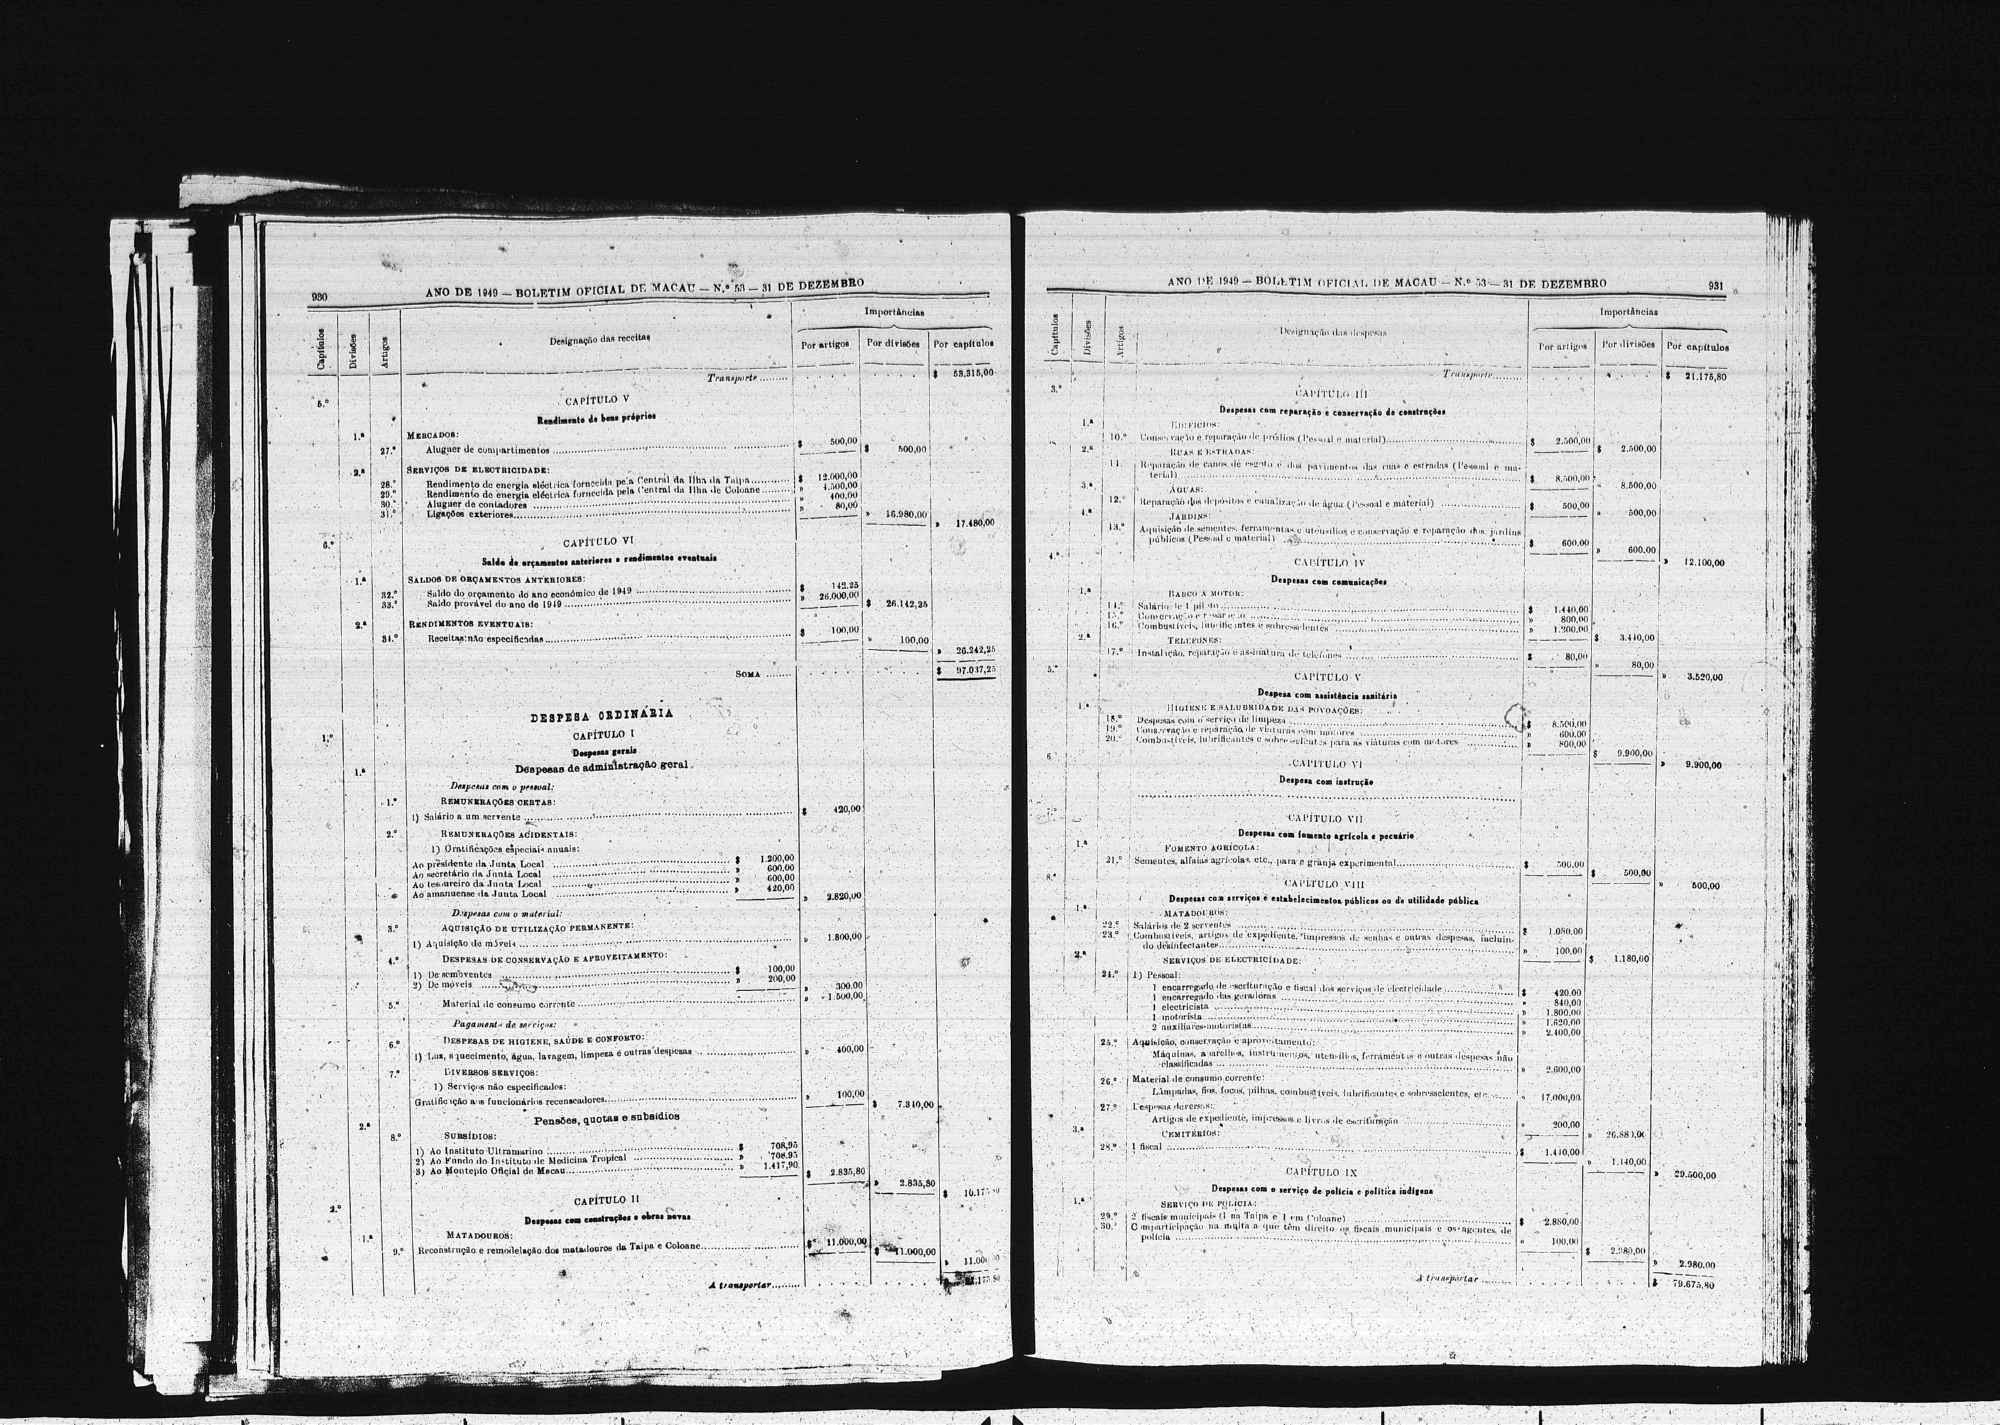 930
ANO DE 1949 — BOLETIM OFICIAL DE MACAU — N.º 53 — 31 DE DEZEMBRO
Capítulos
Divisões
Artigos
Designação das receitas
Importâncias
Por artigos
Por divisões
Por capítulos
Transporte......... $ 53.315,00
5.º CAPÍTULO V
Rendimento de bens próprios
1.ª MERCADOS:
27.º Aluguer de compartimentos $ 500,00 $ 500,00
2.ª SERVIÇOS DE ELECTRICIDADE:
28.º Rendimento de energia eléctrica fornecida pela Central da Ilha da Taipa $ 12.000,00
29.º Rendimento de energia eléctrica fornecida pela Central da Ilha de Coloane » 4.500,00
30.º Aluguer de contadores » 400,00
31.º Ligações exteriores » 80,00 » 16.980,00 » 17.480,00
6.º CAPÍTULO VI
Saldo de orçamentos anteriores e rendimentos eventuais
1.ª SALDOS DE ORÇAMENTOS ANTERIORES:
32.º Saldo do orçamento do ano económico de 1949 $ 142,25
33.º Saldo provável do ano de 1949 » 26.000,00 $ 26.142,25
2.ª RENDIMENTOS EVENTUAIS:
34.º Receitas não especificadas $ 100,00 » 100,00 » 26.242,25
SOMA ....... $ 97.037,25
DESPESA ORDINÁRIA
1.º CAPÍTULO I
Despesas gerais
1.ª Despesas de administração geral
Despesas com o pessoal:
1.º REMUNERAÇÕES CERTAS:
1) Salário a um servente $ 420,00
2.º REMUNERAÇÕES ACIDENTAIS:
1) Gratificações especiais anuais:
Ao presidente da Junta Local $ 1.200,00
Ao secretário da Junta Local » 600,00
Ao tesoureiro da Junta Local » 600,00
Ao amanuense da Junta Local » 420,00 » 2.820,00
Despesas com o material:
3.º AQUISIÇÃO DE UTILIZAÇÃO PERMANENTE:
1) Aquisição de móveis » 1.800,00
4.º DESPESAS DE CONSERVAÇÃO E APROVEITAMENTO:
1) De semoventes $ 100,00
2) De móveis » 200,00 » 300,00
5.º Material de consumo corrente » 1.500,00
Pagamento de serviços:
6.º DESPESAS DE HIGIENE, SAÚDE E CONFORTO:
1) Luz, aquecimento, água, lavagem, limpeza e outras despesas » 400,00
7.º DIVERSOS SERVIÇOS:
1) Serviços não especificados:
Gratificação aos funcionários recenseadores » 100,00 $ 7.340,00
2.ª Pensões, quotas e subsídios
8.º SUBSÍDIOS:
1) Ao Instituto Ultramarino $ 708,95
2) Ao Fundo do Instituto de Medicina Tropical » 708,95
3) Ao Montepio Oficial de Macau » 1.417,90 $ 2.835,80 » 2.835,80 $
2.º CAPÍTULO II
Despesas com construções e obras novas
1.ª MATADOUROS:
9.º Reconstrução e remodelação dos matadouros da Taipa e Coloane $ 11.000,00 $ 11.000,00 »
A transportar.........
ANO DE 1949 — BOLETIM OFICIAL DE MACAU — N.º 53 — 31 DE DEZEMBRO
931
Capítulos
Divisões
Artigos
Designação das despesas
Importâncias
Por artigos
Por divisões
Por capítulos
Transporte......... $ 21.175,80
3.º CAPÍTULO III
Despesas com reparação e conservação de construções
1.ª EDIFÍCIOS:
10.º Conservação e reparação de prédios (Pessoal e material) $ 2.500,00 $ 2.500,00
2.ª RUAS E ESTRADAS:
11. Reparação de canos de esgoto e dos pavimentos das ruas e estradas (Pessoal e ma-
terial) $ 8.500,00 » 8.500,00
3.ª ÁGUAS:
12.º Reparação dos depósitos e canalização de água (Pessoal e material) $ 500,00 » 500,00
4.ª JARDINS:
13.º Aquisição de sementes, ferramentas e utensílios e conservação e reparação dos jardins
públicos (Pessoal e material) $ 600,00 » 600,00 » 12.100,00
4.º CAPÍTULO IV
Despesas com comunicações
1.ª BARCO A MOTOR:
14.º Salário de 1 piloto $ 1.440,00
15.º Conservação e reparação » 800,00
16.º Combustíveis, lubrificantes e sobresselentes » 1.200,00 $ 3.440,00
2.ª TELEFONES:
17.º Instalação, reparação e assinatura de telefones $ 80,00 » 80,00 » 3.520,00
5.º CAPÍTULO V
Despesa com assistência sanitária
1.ª HIGIENE E SALUBRIDADE DAS POVOAÇÕES:
18.º Despesas com o serviço de limpeza $ 8.500,00
19.º Conservação e reparação de viaturas com motores » 600,00
20.º Combustíveis, lubrificantes e sobresselentes para as viaturas com motores » 800,00 $ 9.900,00 » 9.900,00
6. CAPÍTULO VI
Despesa com instrução
7.º CAPÍTULO VII
Despesas com fomento agrícola e pecuário
1.ª FOMENTO AGRÍCOLA:
21.º Sementes, alfaias agrícolas, etc., para a granja experimental $ 500,00 $ 500,00 » 500,00
8.º CAPÍTULO VIII
Despesas com serviços e estabelecimentos públicos ou de utilidade pública
1.ª MATADOUROS:
22.º Salários de 2 serventes $ 1.080,00
23.º Combustíveis, artigos de expediente, impressos de senhas e outras despesas, incluin-
do desinfectantes » 100,00 $ 1.180,00
2.ª SERVIÇOS DE ELECTRICIDADE:
24.º 1) Pessoal:
1 encarregado de escrituração e fiscal dos serviços de electricidade $ 420,00
1 encarregado das geradoras » 840,00
1 electricista » 1.800,00
1 motorista » 1.620,00
2 auxiliares-motoristas » 2.400,00
25.º Aquisição, conservação e aproveitamento:
Máquinas, aparelhos, instrumentos, utensílios, ferramentas e outras despesas não
classificadas » 2.600,00
26.º Material de consumo corrente:
Lâmpadas, fios, focos, pilhas, combustíveis, lubrificantes e sobresselentes, etc. » 17.000,00
27.º Despesas diversas:
Artigos de expediente, impressos e livros de escrituração » 200,00 » 26.880,00
3.ª CEMITÉRIOS:
28.º 1 fiscal $ 1.440,00 » 1.440,00 » 29.500,00
CAPÍTULO IX
Despesas com o serviço de polícia e política indígena
1.ª SERVIÇO DE POLÍCIA:
29.º 2 fiscais municipais (1 na Taipa e 1 em Coloane) $ 2.880,00
30.º Comparticipação na multa a que têm direito os fiscais municipais e os agentes de
polícia » 100,00 $ 2.980,00 » 2.980,00
A transportar......... $ 79.675,80